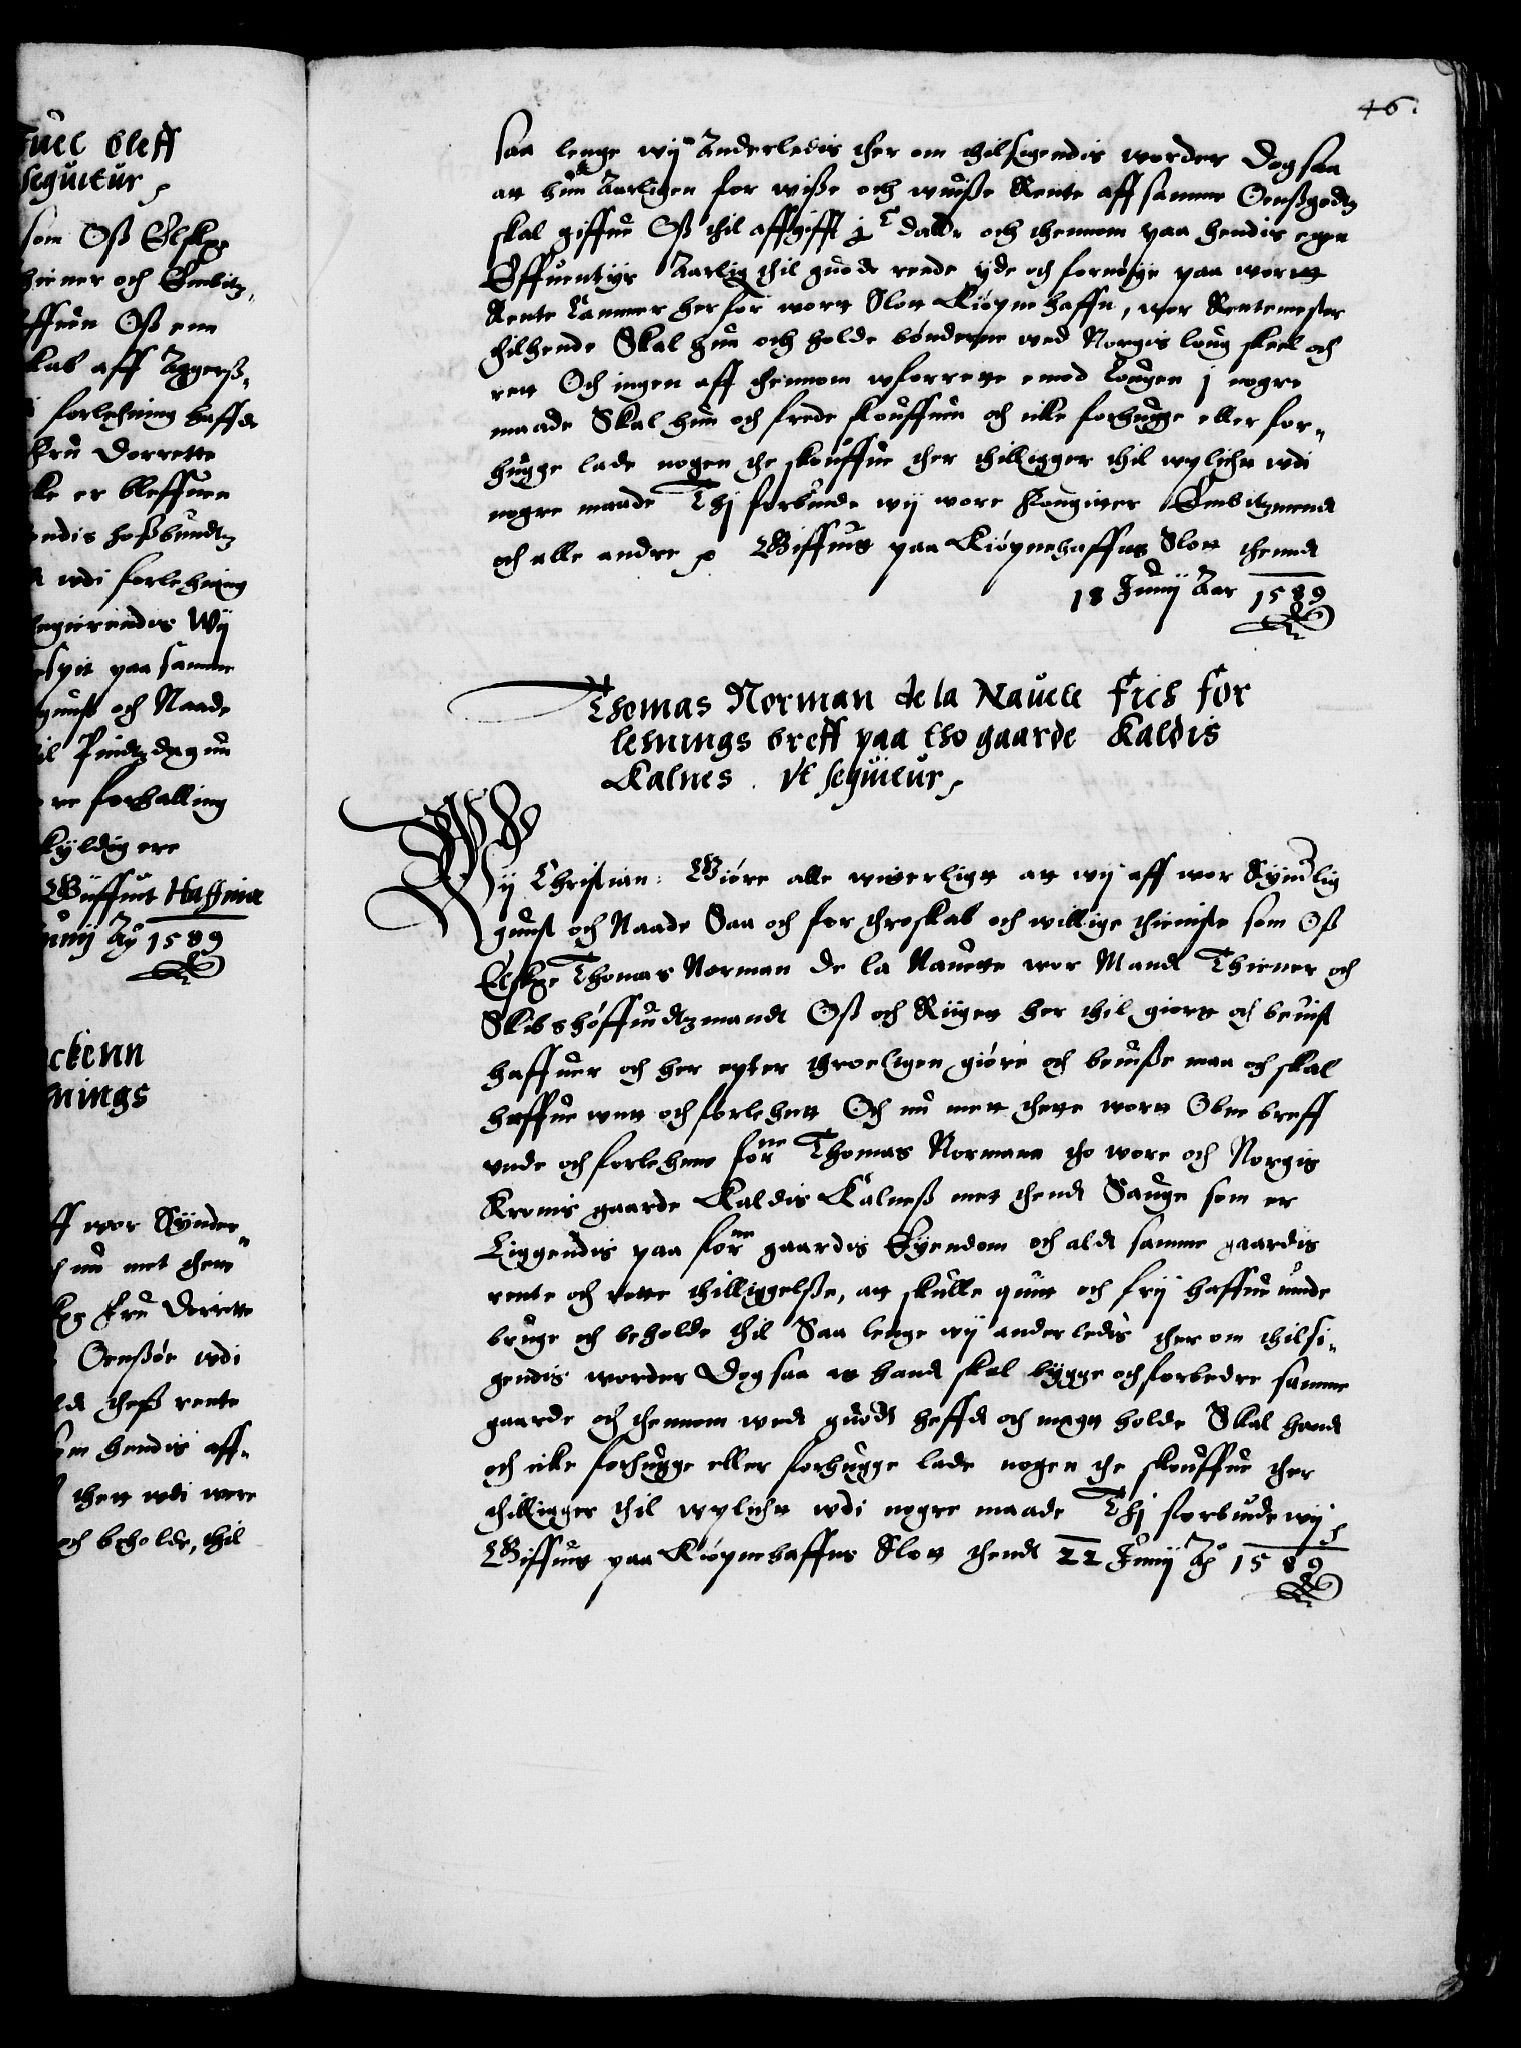 uel breff
sequitur
som Oß Elskge
thiener och Embitz¬
affuen Oß enn
skab aff Aggerß¬
forlehning haffde
Fru Dorrette
ke er bleffuen
endis hoßbundtz
wdi forlehning
begierendis Wij
espit paa samme
gunst och Naade
til Pindtzdag nu
re forhalling
skyldig ere
Giffuit Haffniæ
Junij Ao 1589
ckenn
nings
ff wor Synder¬
och nu met thette
Elskg Fru Dorette
Oensøe wdi
aldt theß rente
som hendis aff¬
thett wdi were
och beholde, thil
46.
saa lenge wij Anderledis ther om thilsigendis worder Dog saa
att hun Aarligen for wiße och wuiße Rente aff samme Oenßgodtz
skal giffue Oß thil affgifft j C daller och thennom paa hendis egen
Effuentyr Aarlig thil guode rede yde och fornøye paa wortt
Rente Cammer her for wort Slott Kiøpnehaffn, wor Rentemester
thilhende Skal hun och holde bønderne wed Norgis loug skeel och
rett Och ingen aff thennom wforrette emod Lougen j nogre
maade Skal hun och frede skouffuen och icke forhugge eller for¬
hugge lade nogen the skouffue ther thilligger thil wplicht wdi
nogre maade Thj forbiude wij wore fougitter Embitzmendt
och alle andre p Giffuet paa Kiøpnehaffns Slott thend
18 Junij Aar 1589
Thomas Norman de la Nauete fich for
lehnings breff paa tho gaarde Kaldis
Kalnes. vt sequitur
Wij Christian: Giøre alle witterligtt att wij aff wor Synderlig
gunst och Naade Saa och for throskab och willige thieniste som Oß
Elskge Thomas Norman de la Nauette wor Mandt Thiener och
Skibshøffuidtzmandt Oß och Riigett her thil giortt och beuist
haffuer och her epter throeligen giøre och beuiße maa och skal
haffue wntt och forlehnt Och nu mett thette wortt Obne breff
vnde och forlehne forne Thomas Normann tho wore och Norgis
Kronis gaarde Kaldis Kalneß mett thend Sauge som er
Liggendis paa forne gaardis Eyendom och aldt samme gaardis
rente och rette thilliggelße, att skulle quit och frij haffue niude
bruge och beholde thil Saa lenge wij anderledis ther om thilsi¬
gendis worder Dog saa at hand skal bygge och forbedre samme
gaarde och thennom wedt guodt heffdt och magtt holde Skal handt
och icke forhugge eller forhugge lade nogen the skouffue ther
thilligger thil wplicht wdi nogre maade Thj forbiude wij
Giffuet paa Kiøpnehaffns Slott thend 22 Junij Ao 1589